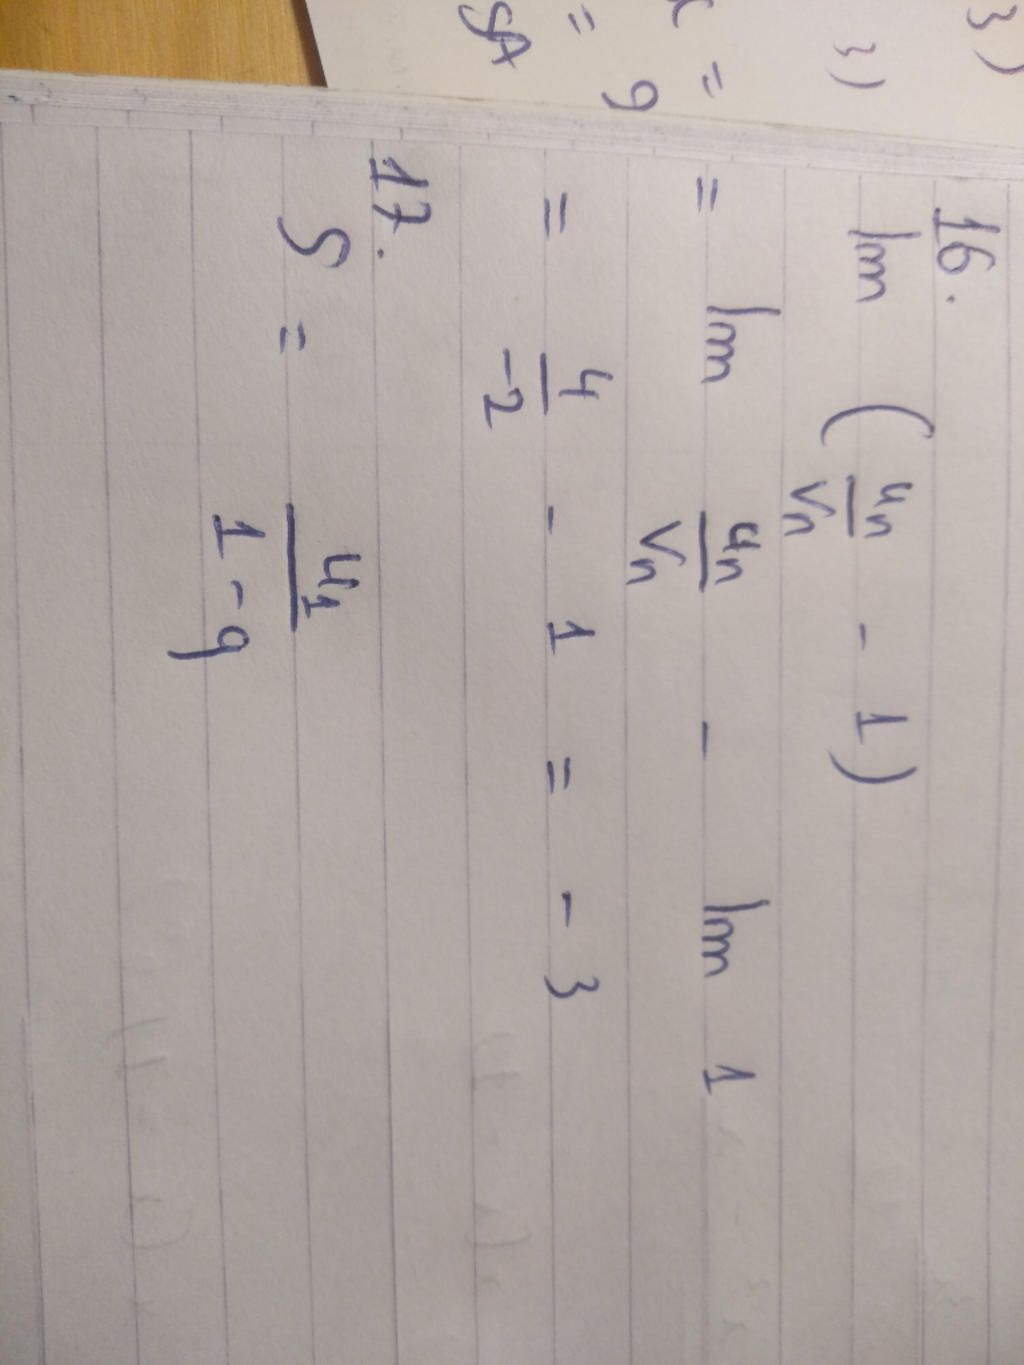 16.
lim ( un/vn - 1 )
= lim un/vn - lim 1
= 4/-2 - 1 = - 3
17.
S = u1/1 - q